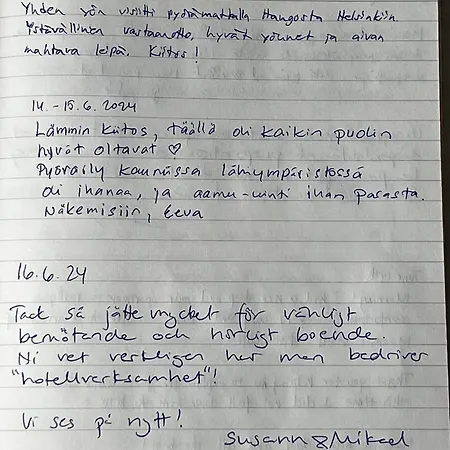 Yhden yön visiitti pyörämatkalla Hangosta Helsinkiin
Ystävällinen vastaanotto, hyvät yöunet ja aivan
mahtava leipä. Kiitos!
14.-15.6.2024
Lämmin kiitos, täällä oli kaikin puolin
hyvät oltavat ♡
Pyöräily kauniissa lähiympäristössä
oli ihanaa, ja aamu-uinti ihan parasta.
Näkemisiin, Eeva
16.6.24
Tack så jätte mycket för vänligt
bemötande och härligt boende.
Ni vet verkligen hur man bedriver
"hotellverksamhet"!
Vi ses på nytt!
Susann & Mikael